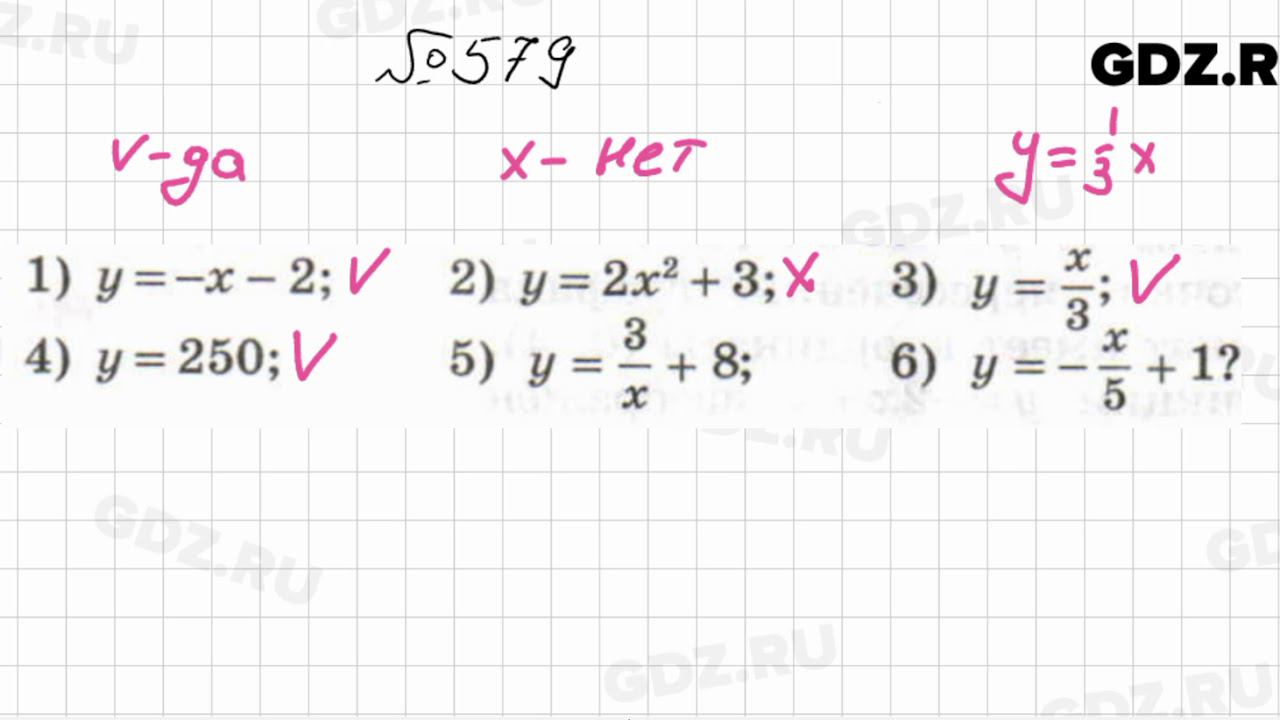 GDZ.RU
GDZ.RU
№579
GDZ.R
v-да x- нет y = 1/3 x
GDZ.RU
1) y = −x − 2; V 2) y = 2x² + 3; X 3) y = x/3; V
4) y = 250; V 5) y = 3/x + 8; 6) y = −x/5 + 1?
GDZ.RU
GDZ.RU
GDZ.RU
GDZ.RU